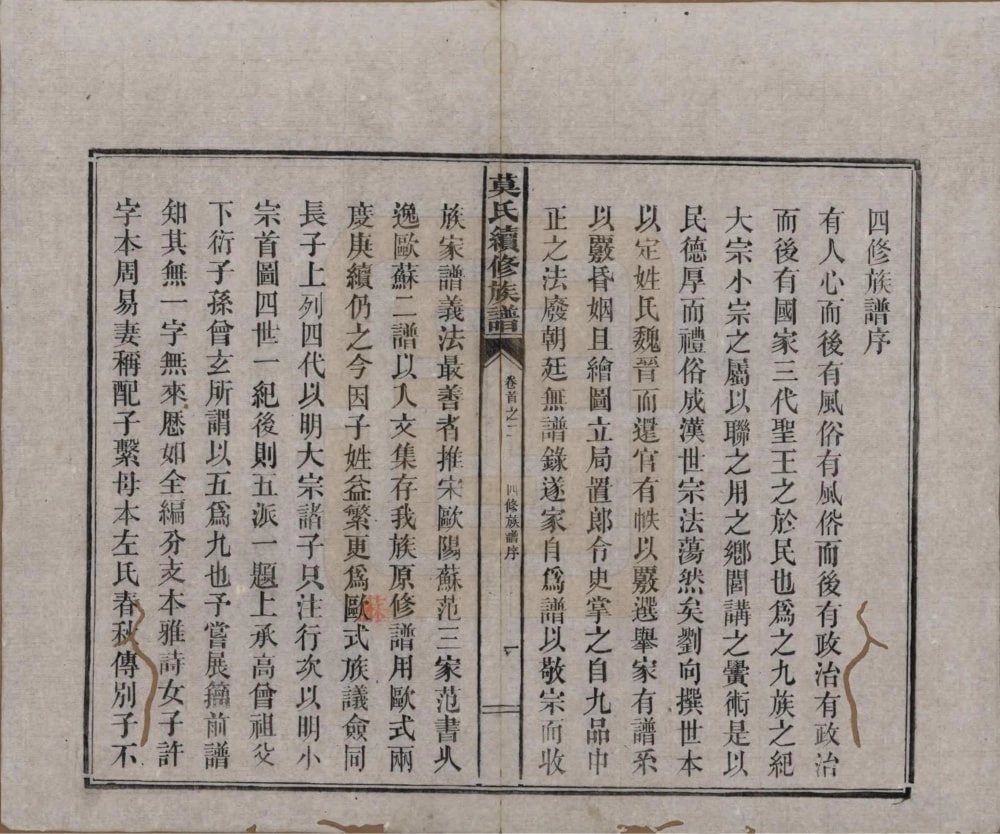 四修族譜序
有人心而後有風俗有風俗而後有政治有政治
而後有國家三代聖王之於民也爲之九族之紀
大宗小宗之屬以聯之用之鄉閭講之黌術是以
民德厚而禮俗成漢世宗法蕩然矣劉向撰世本
以定姓氏魏晉而還官有帙以覈選舉家有譜系
以覈昏姻且繪圖立局置郎令史掌之自九品中
正之法廢朝廷無譜錄遂家自爲譜以敬宗而收
莫氏續修族譜
卷首之二
四修族譜序
一
族家譜義法最善者推宋歐陽蘇范三家范書久
逸歐蘇二譜以人文集存我族原修譜用歐式兩
度庚續仍之今因子姓益繁更爲歐式族議僉同
蘇
長子上列四代以明大宗諸子只注行次以明小
宗首圖四世一紀後則五派一題上承高曾祖父
下衍子孫曾玄所謂以五爲九也予嘗展籀前譜
知其無一字無來歷如全編分支本雅詩女子許
字本周易妻稱配子繫母本左氏春秋傳別子不